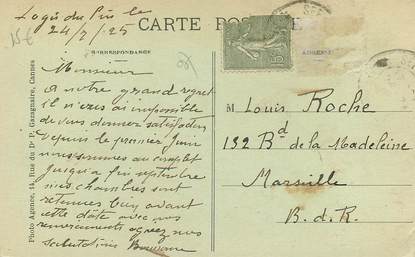 Logis du Pin le
24/7/25
CARTE POSTALE
CORRESPONDANCE
ADRESSE
Monsieur
a notre grand regret
il n'est ai impossible
de vous donner satisfaction
Depuis le premier Juin
nous sommes au complet
jusqu'a fin septembre
nos chambres sont
retenues bien avant
cette date avec nos
remerciements agréez nos
salutations
M. Louis Roche
132 Bd de la Madeleine
Marseille
B. d. R.
Photo Agence, 14, Rue du Dr P. Gazagnaire, Cannes